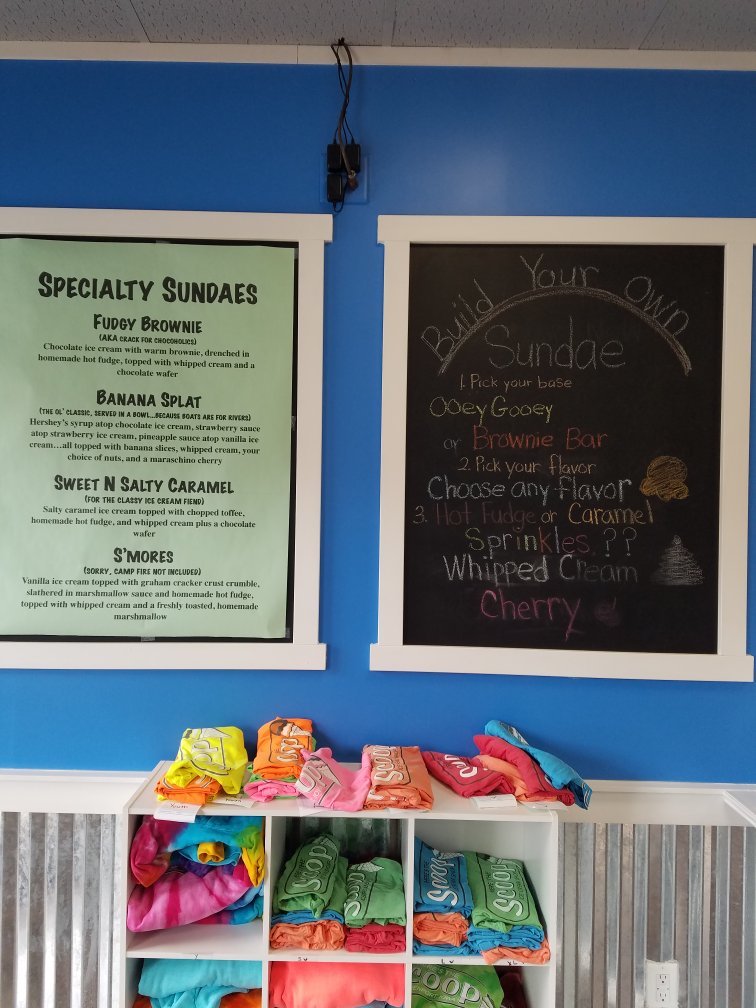 SPECIALTY SUNDAES
FUDGY BROWNIE
(AKA CRACK FOR CHOCOHOLICS)
Chocolate ice cream with warm brownie, drenched in
homemade hot fudge, topped with whipped cream and a
chocolate wafer
BANANA SPLAT
(THE OL' CLASSIC, SERVED IN A BOWL...BECAUSE BOATS ARE FOR RIVERS)
Hershey's syrup atop chocolate ice cream, strawberry sauce
atop strawberry ice cream, pineapple sauce atop vanilla ice
cream...all topped with banana slices, whipped cream, your
choice of nuts, and a maraschino cherry
SWEET N SALTY CARAMEL
(FOR THE CLASSY ICE CREAM FIEND)
Salty caramel ice cream topped with chopped toffee,
homemade hot fudge, and whipped cream plus a chocolate
wafer
S'MORES
(SORRY, CAMP FIRE NOT INCLUDED)
Vanilla ice cream topped with graham cracker crust crumble,
slathered in marshmallow sauce and homemade hot fudge,
topped with whipped cream and a freshly toasted, homemade
marshmallow
Build Your Own
Sundae
1. Pick your base
Ooey Gooey
or Brownie Bar
2. Pick your flavor
Choose any flavor
3. Hot Fudge or Caramel
Sprinkles ??
Whipped Cream
Cherry
Scoops
Scoops
Scoops